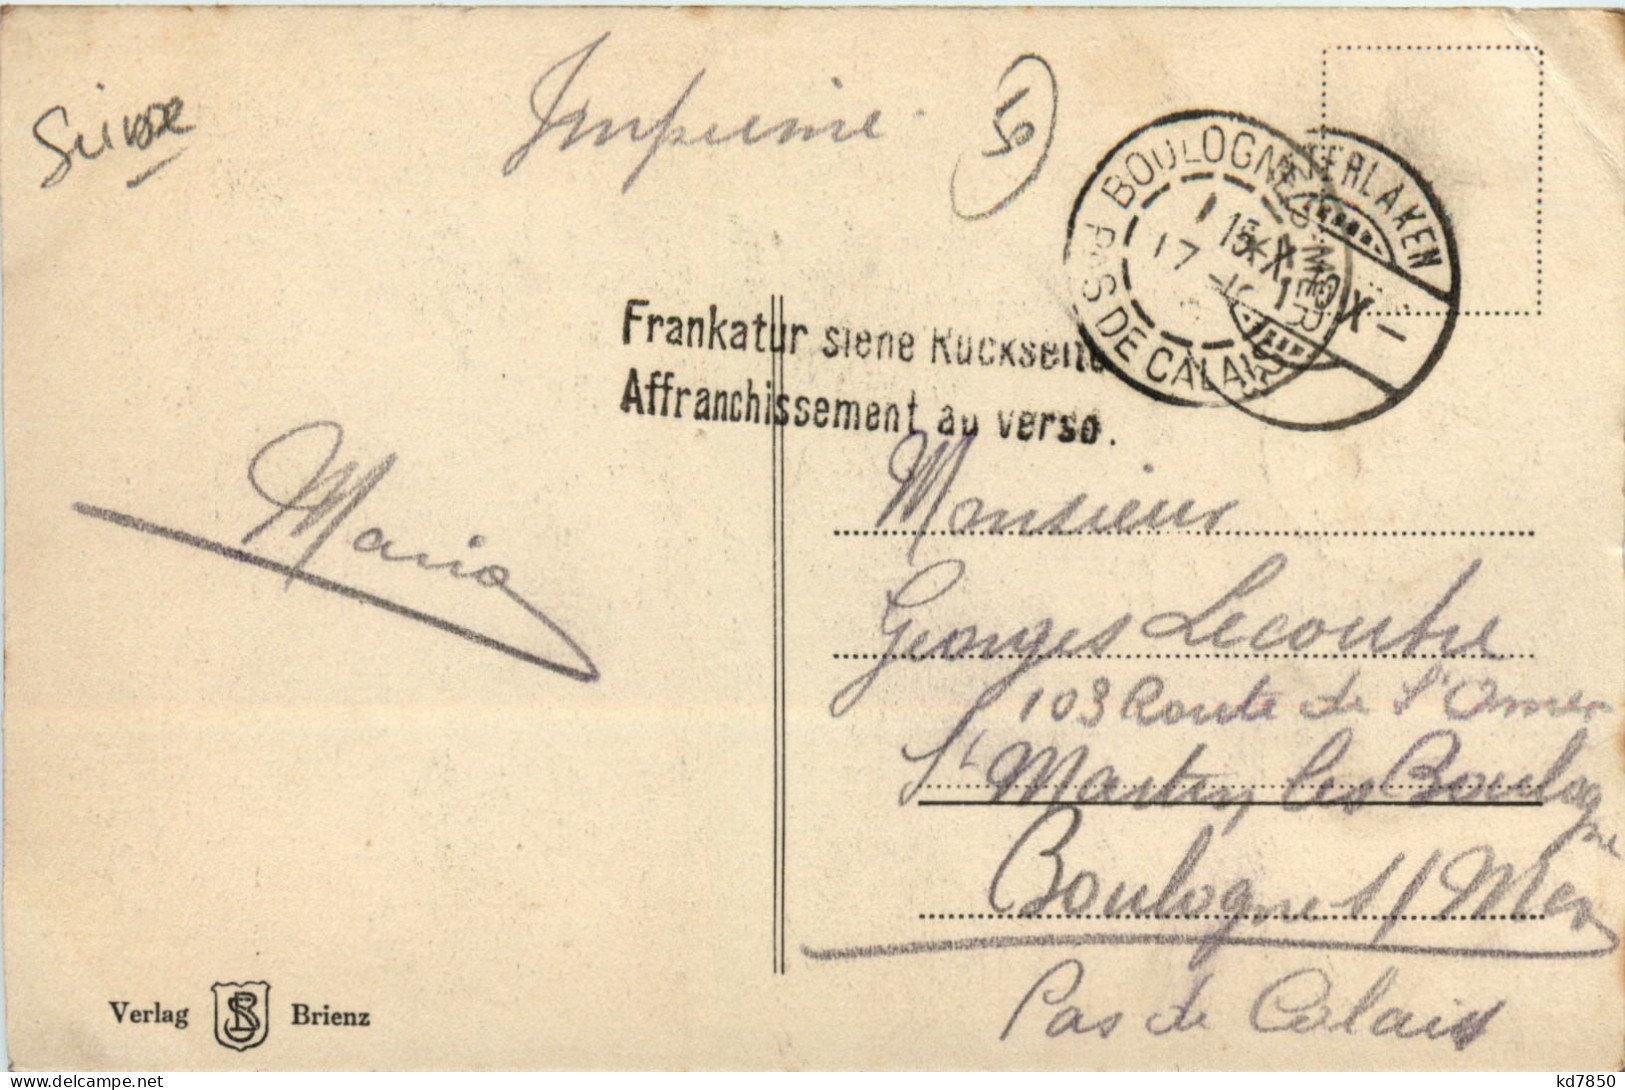 Suisse
Imprimé
50
BOULOGNE S-MER
PAS DE CALAIS
17
INTERLAKEN
15. X.
Frankatur siehe Rückseite
Affranchissement au verso.
Maria
Monsieur
Georges Lecoutre
103 Route de St Omer
St Martin les Boulogne
Boulogne s/ Mer
Pas de Calais
Verlag SB Brienz
kd7850